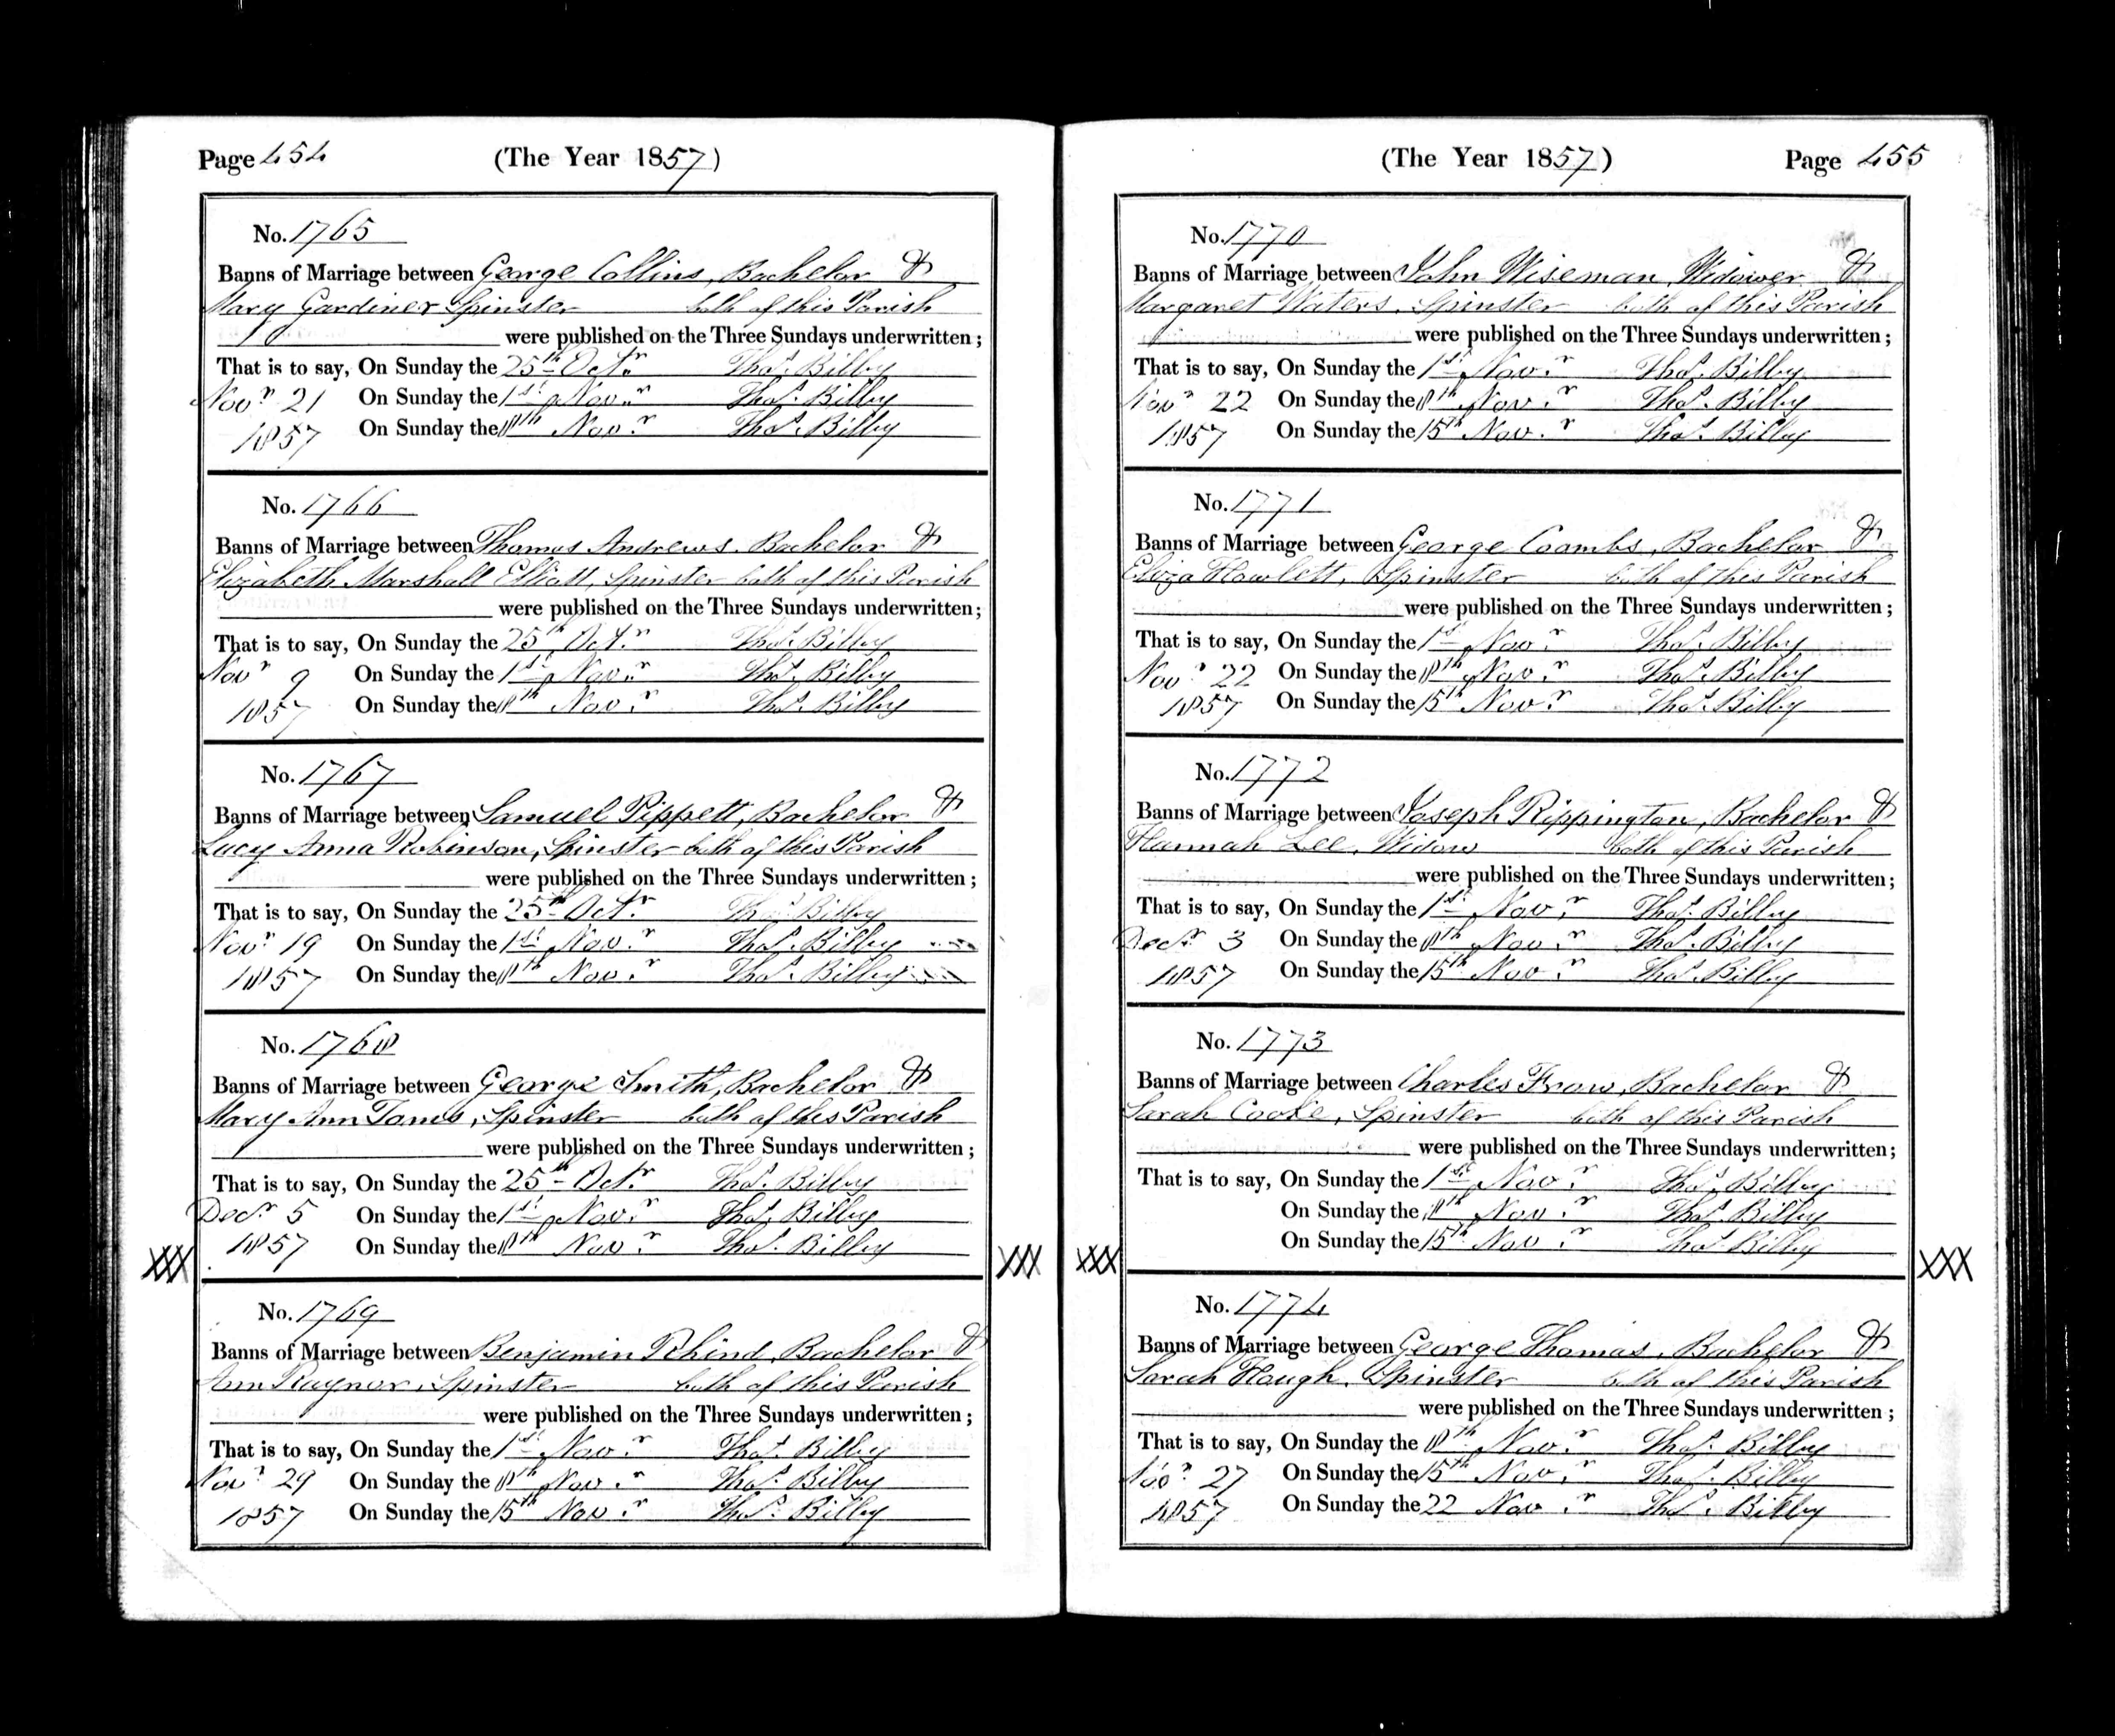 Page 454 (The Year 1857)
No. 1765
Banns of Marriage between George Collins, Bachelor &
Mary Gardiner Spinster both of this Parish
were published on the Three Sundays underwritten;
That is to say, On Sunday the 25th Octr Thos. Billby
Novr 21 On Sunday the 1st Novr Thos. Billby
1857 On Sunday the 8th Novr Thos. Billby
No. 1766
Banns of Marriage between Thomas Andrews. Bachelor &
Elizabeth Marshall Elliott, Spinster both of this Parish
were published on the Three Sundays underwritten;
That is to say, On Sunday the 25th Octr Thos. Billby
Novr 9 On Sunday the 1st Novr Thos. Billby
1857 On Sunday the 8th Novr Thos. Billby
No. 1767
Banns of Marriage between Samuel Pippett, Bachelor &
Lucy Anna Robinson, Spinster both of this Parish
were published on the Three Sundays underwritten;
That is to say, On Sunday the 25th Octr Thos. Billby
Novr 19 On Sunday the 1st Novr Thos. Billby
1857 On Sunday the 8th Novr Thos. Billby
No. 1768
Banns of Marriage between George Smith, Bachelor &
Mary Ann, Spinster both of this Parish
were published on the Three Sundays underwritten;
That is to say, On Sunday the 25th Octr Thos. Billby
Decr 5 On Sunday the 1st Novr Thos. Billby
1857 On Sunday the 8th Novr Thos. Billby
XXX XXX
No. 1769
Banns of Marriage between Benjamin Rhind, Bachelor &
Ann Raynor, Spinster both of this Parish
were published on the Three Sundays underwritten;
That is to say, On Sunday the 1st Novr Thos. Billby
Novr 29 On Sunday the 8th Novr Thos. Billby
1857 On Sunday the 15th Novr Thos. Billby
(The Year 1857) Page 455
No. 1770
Banns of Marriage between John Wiseman, Widower &
Margaret Waters, Spinster both of this Parish
were published on the Three Sundays underwritten;
That is to say, On Sunday the 1st Novr Thos. Billby
Novr 22 On Sunday the 8th Novr Thos. Billby
1857 On Sunday the 15th Novr Thos. Billby
No. 1771
Banns of Marriage between George Coombs, Bachelor &
Eliza Howlett, Spinster both of this Parish
were published on the Three Sundays underwritten;
That is to say, On Sunday the 1st Novr Thos. Billby
Novr 22 On Sunday the 8th Novr Thos. Billby
1857 On Sunday the 15th Novr Thos. Billby
No. 1772
Banns of Marriage between Joseph Rippington, Bachelor &
Hannah Lee, Widow both of this Parish
were published on the Three Sundays underwritten;
That is to say, On Sunday the 1st Novr Thos. Billby
Decr 3 On Sunday the 8th Novr Thos. Billby
1857 On Sunday the 15th Novr Thos. Billby
No. 1773
Banns of Marriage between Charles Frow, Bachelor &
Sarah Cooke, Spinster both of this Parish
were published on the Three Sundays underwritten;
That is to say, On Sunday the 1st Novr Thos. Billby
On Sunday the 8th Novr Thos. Billby
On Sunday the 15th Novr Thos. Billby
XXX XXX
No. 1774
Banns of Marriage between George Thomas, Bachelor &
Sarah Hough, Spinster both of this Parish
were published on the Three Sundays underwritten;
That is to say, On Sunday the 8th Novr Thos. Billby
Novr 27 On Sunday the 15th Novr Thos. Billby
1857 On Sunday the 22 Novr Thos. Billby